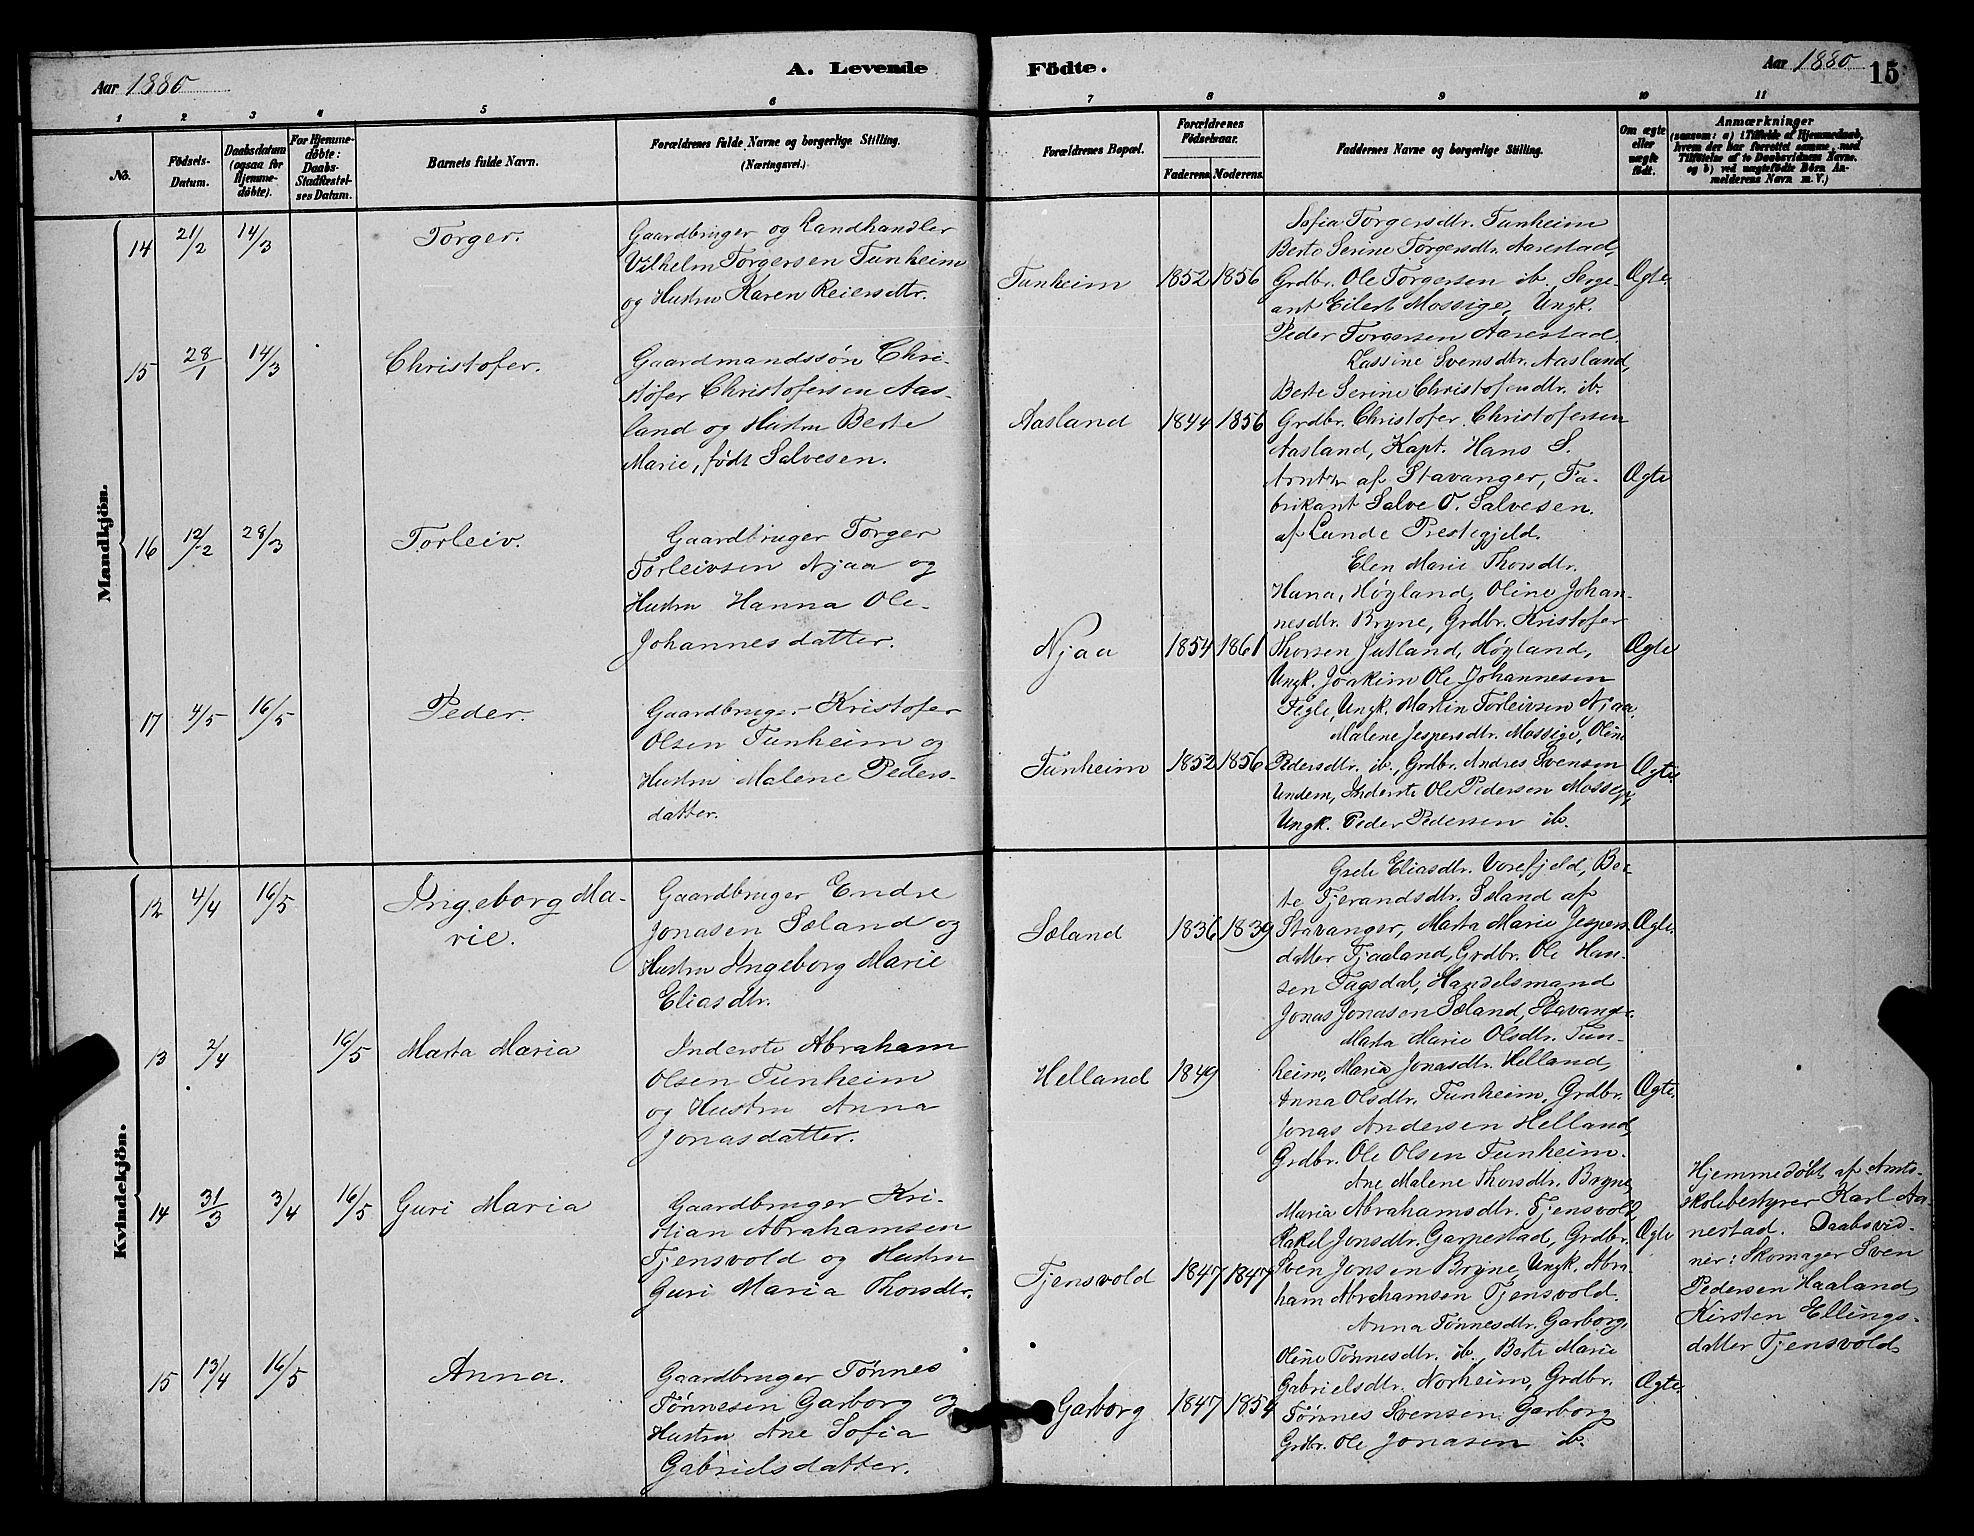 Aar 1880
A. Levende Födte.
Aar 1880
15
1 2 3 4 5 6 7 8 9 10 11
No.
Födsels-
Datum.
Daabsdatum
(ogsaa for
Hjemme-
döbte).
For Hjemme-
döbte:
Daabs-
Stadfæstel-
ses Datum.
Barnets fulde Navn.
Forældrenes fulde Navne og borgerlige Stilling.
(Næringsvei.)
Forældrenes Bopæl.
Forældrenes
Födselsaar.
Faderens. Moderens.
Faddernes Navne og borgerlige Stilling.
Om ægte
eller
uægte
födt.
Anmærkninger
(saasom: a) i Tilfælde af Hjemmedaab,
hvem der har forrettet samme, med
Tilföielse af to Daabsvidners Navne.
og b) ved uægtefödte Börn An-
melderens Navn m. V.)
Mandkjön.
14 21/2 14/3 Torger.
Gaardbruger og Landhandler
Vilhelm Torgersen Tunheim
og Hustru Karen Reiersdtr.
Tunheim 1852 1856
Sofia Torgersdtr. Tunheim
Berte Serine Torgersdtr. Aarestad,
Grdbr. Ole Torgersen ib. Serge-
ant Eilert Mossige, Ungk.
Peder Torgersen Aarestad.
Ægte
15 28/1 14/3 Christofer.
Gaardmandssøn Chri-
stofer Christofersen Aas-
land og Hustru Berte
Marie, født Salvesen.
Aasland 1844 1856
Lassine Svensdtr. Aasland,
Berte Serine Christofersdtr. ib.
Grdbr. Christofer Christofersen
Aasland, Kapt. Hans S.
af Stavanger, Fa-
brikant Salve O. Salvesen.
af Lunde Prestegjeld.
Ægte
16 12/2 28/3 Torleiv.
Gaardbruger Torger
Torleivsen Njaa og
Hustru Hanna Ole-
Johannesdatter.
Njaa 1854 1861
Elen Marie Thorsdtr.
Hana, Høgland, Oline Johan-
nesdtr. Bryne, Grdbr. Kristofer
Thorsen Jutland, Høgland,
Ungk. Joakim Ole Johannesen
Tegle, Ungk. Martin Torleivsen Njaa.
Ægte
17 4/5 16/5 Peder.
Gaardbruger Kristofer
Olsen Tunheim og
Hustru Malene Peders-
datter.
Tunheim 1852 1856
Malene Jespersdtr. Mossige, Oline
Pedersdtr. ib., Grdbr. Andres Svensen
Undem, Inderste Ole Pedersen Mossige,
Ungk. Peder Pedersen ib.
Ægte
Kvindekjön.
12 4/4 16/5 Ingeborg Ma-
rie.
Gaardbruger Endre
Jonasen Sæland og
Hustru Ingeborg Marie
Eliasdtr.
Sæland 1836 1839
Grete Eliasdtr. Vorefjeld, Ber-
te Tjerandsdtr. Sæland af
Stavanger, Marta Marie Jespers-
datter Tjaaland, Grdbr. Ole Han-
sen Fagsdal, Handelsmand
Jonas Jonasen Sæland, Stavanger.
Ægte.
13 2/4 16/5 Marta Maria
Inderste Abraham
Olsen Tunheim
og Hustru Anna
Jonasdatter.
Helland 1849
Marta Marie Olsdtr. Tun-
heim, Maria Jonasdtr. Helland,
Anna Olsdtr. Tunheim, Grdbr.
Jonas Andersen Helland,
Grdbr. Ole Olsen Tunheim.
Ægte.
14 31/3 3/4 16/5 Guri Maria
Gaardbruger Kri-
stian Abrahamsen
Tjensvold og Hustru
Guri Maria Thorsdtr.
Tjensvold 1847 1847
Ane Malene Thorsdtr. Bryne,
Maria Abrahamsdtr. Tjensvold,
Rakel Jonsdtr. Garpestad, Grdbr.
Sven Jonsen Bryne, Ungk. Abra-
ham Abrahamsen Tjensvold.
Ægte
Hjemmedøbt af Amts-
skolebestyrer Karl Aa-
nestad. Daabsvid-
ner: Skomager Sven
Pedersen Haaland,
Kirsten Ellings-
datter Tjensvold
15 13/4 16/5 Anna.
Gaardbruger Tønnes
Tønnesen Garborg og
Hustru Ane Sofia
Gabrielsdatter.
Garborg 1847 1854
Anna Tønnesdtr. Garborg,
Oline Tønnesdtr. ib., Berte Marie
Gabrielsdtr. Norheim, Grdbr.
Tønnes Svensen Garborg
Grdbr. Ole Jonasen ib.
Ægte.